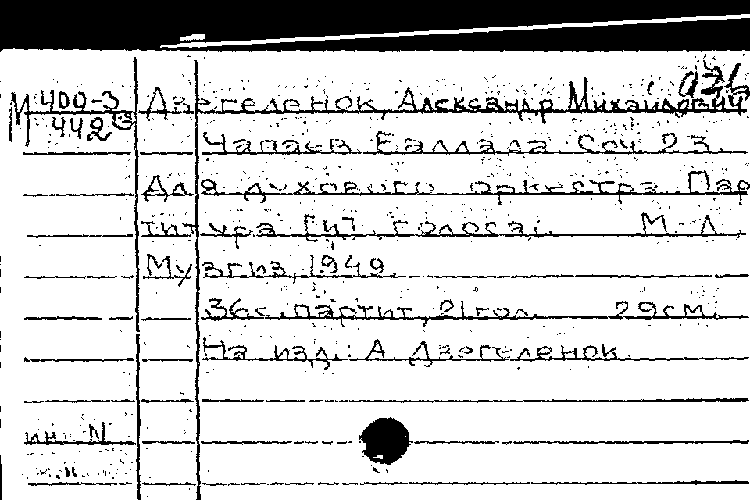 М 400-3
442
Дзегеленок, Александр Михайлович
Чапаев Баллада. Соч 23.
Для духового оркестра. Пар
титура [и] голоса. М.-Л.,
Музгиз, 1949.
36с. партит, 21гол. 29см.
На изд.: А Дзегеленок.
ин. N